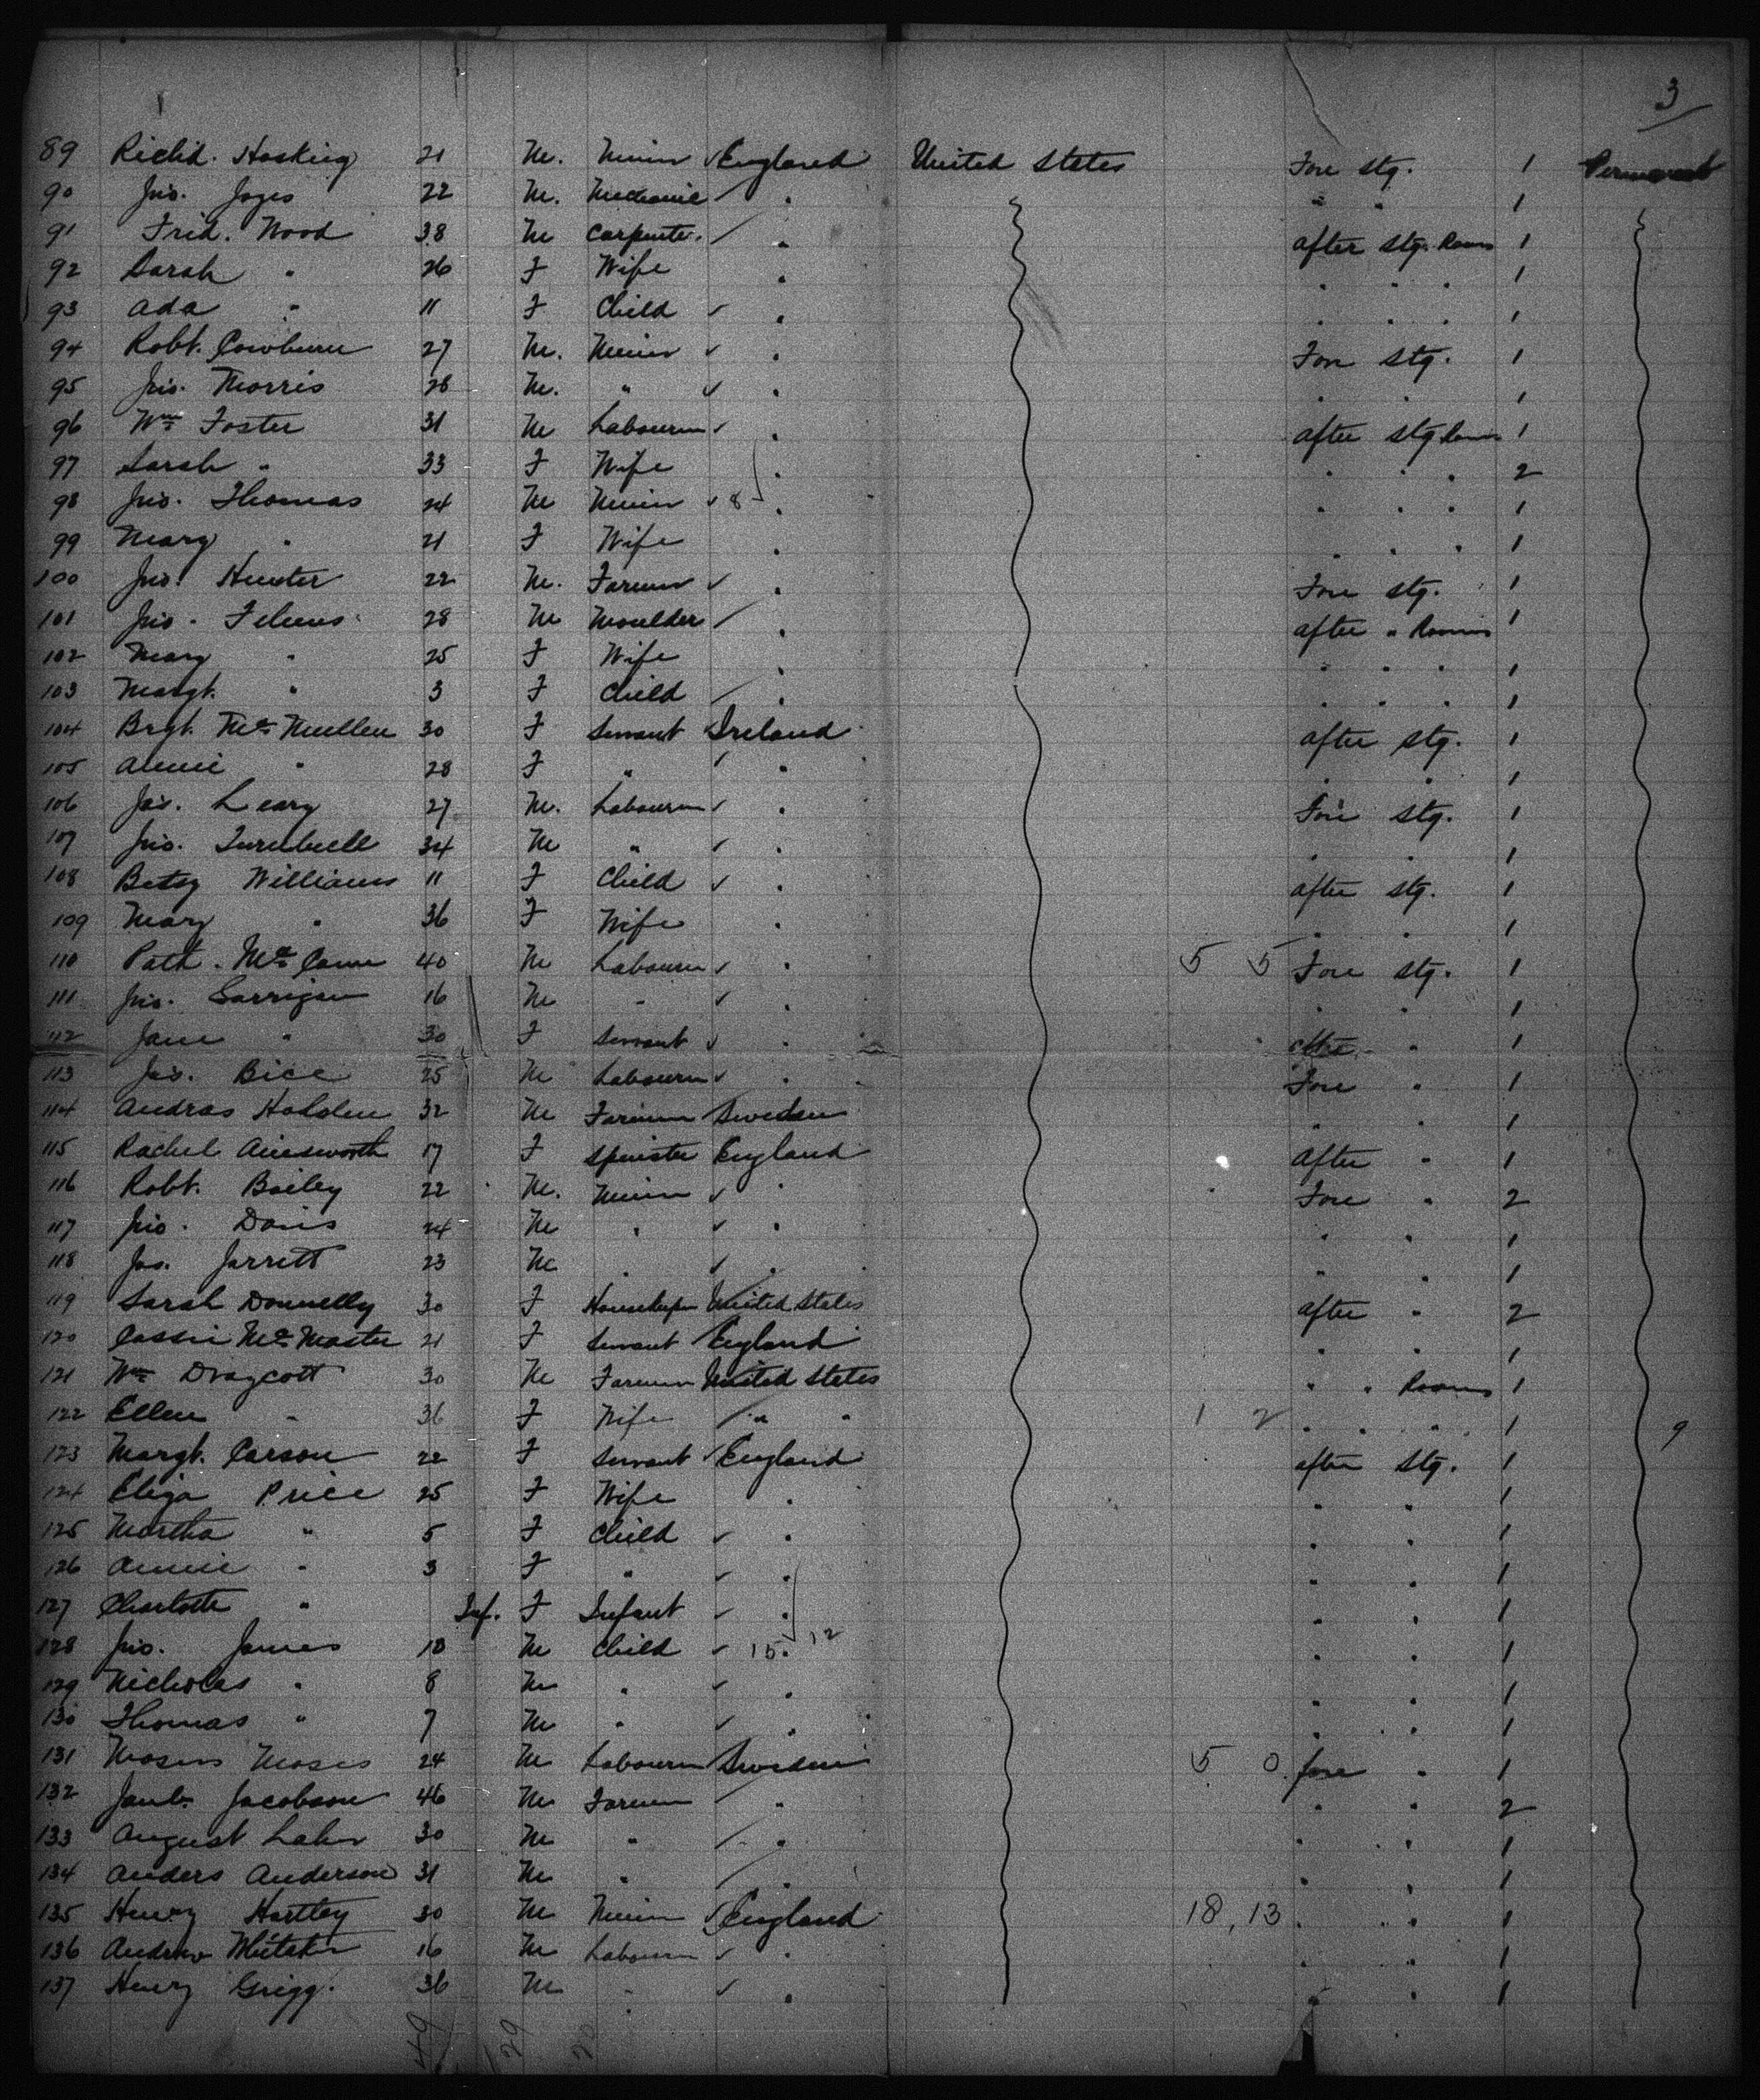 3
89 Richd. Hosking 21 M. Miner ✓ England United States Fore Stg. 1 Permanent
90 Jno. 22 M. Mechanic " " " 1
91 Fred. Wood 38 M Carpenter " after Stg. Rooms 1
92 Sarah " 26 F Wife " " " " 1
93 Ada " 11 F Child ✓ " " " " 1
94 Robt. Cowburn 27 M. Miner ✓ " Fore Stg. 1
95 Jno. Morris 28 M. " ✓ " " " 1
96 Wm Foster 31 M Labourer ✓ " after Stg Rooms 1
97 Sarah " 33 F Wife " " " " 2
98 Jno. Thomas 24 M Miner ✓ 8 " " " " 1
99 Mary " 21 F Wife " " " " 1
100 Jno. Hunter 22 M. Farmer ✓ " Fore Stg. 1
101 Jno. 28 M Moulder " after " Rooms 1
102 Mary " 25 F Wife " " " " 1
103 Margt. " 3 F Child " " " " 1
104 Brgt. McMullen 30 F Servant Ireland after Stg. 1
105 Annie " 28 F " " " " 1
106 Jas. Leary 27 M. Labourer ✓ " Fore Stg. 1
107 Jno. Turnbull 34 M " ✓ " " " 1
108 Betsy Williams 11 F Child ✓ " after Stg. 1
109 Mary " 36 F Wife " " " 1
110 Patk. McCann 40 M Labourer ✓ " 5 5 Fore Stg. 1
111 Jno. 16 M " ✓ " " " 1
112 Jane " 30 F Servant ✓ " after " 1
113 Jas. Bice 25 M Labourer ✓ " Fore " 1
114 Andras Holden 32 M Farmer Sweden " " 1
115 Rachel Ainsworth 17 F Spinster England After " 1
116 Robt. Bailey 22 M. Miner ✓ " Fore " 2
117 Jno. Davis 24 M " ✓ " " " 1
118 Jas. Jarrett 23 M " ✓ " " " 1
119 Sarah Donnelly 30 F Housekeeper United States after " 2
120 Cassie McMaster 21 F Servant England " " 1
121 Wm Draycott 30 M Farmer United States " " Rooms 1
122 Ellen " 36 F Wife " " 1 2 " " " 1 9
123 Margt. Carson 22 F Servant ✓ England after Stg. 1
124 Eliza Price 25 F Wife " " " 1
125 Martha " 5 F Child ✓ " " " 1
126 Annie " 3 F " ✓ " " " 1
127 Charlotte " Inf. F Infant ✓ " " " 1
128 Jno. James 10 M Child ✓ 15 " 12 " " 1
129 Nicholas " 8 M " ✓ " " " 1
130 Thomas " 7 M " ✓ " " " 1
131 Moses 24 M Labourer Sweden 5 0 fore " 1
132 Jacobson 46 M Farmer " " " 2
133 August 30 M " " " " 1
134 Anders Anderson 31 M " " " " 1
135 Henry Hartley 30 M Miner ✓ England 18, 13 " " 1
136 Andrew Whitaker 16 M Labourer ✓ " " " 1
137 Henry Grigg. 36 M " ✓ " " " 1
49 29 20